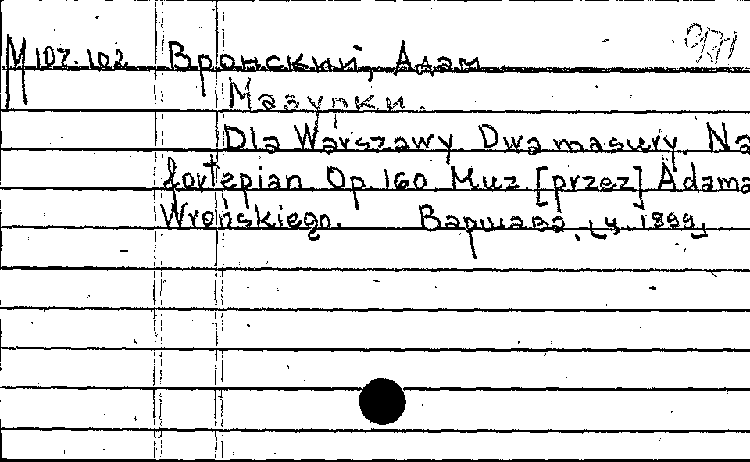 М 107.102 Вронский, Адам
Мазурки.
Dla Warszawy. Dwa mazury. Na
fortepian. Op. 160. Muz [przez] Adama
Wrońskiego. Варшава,